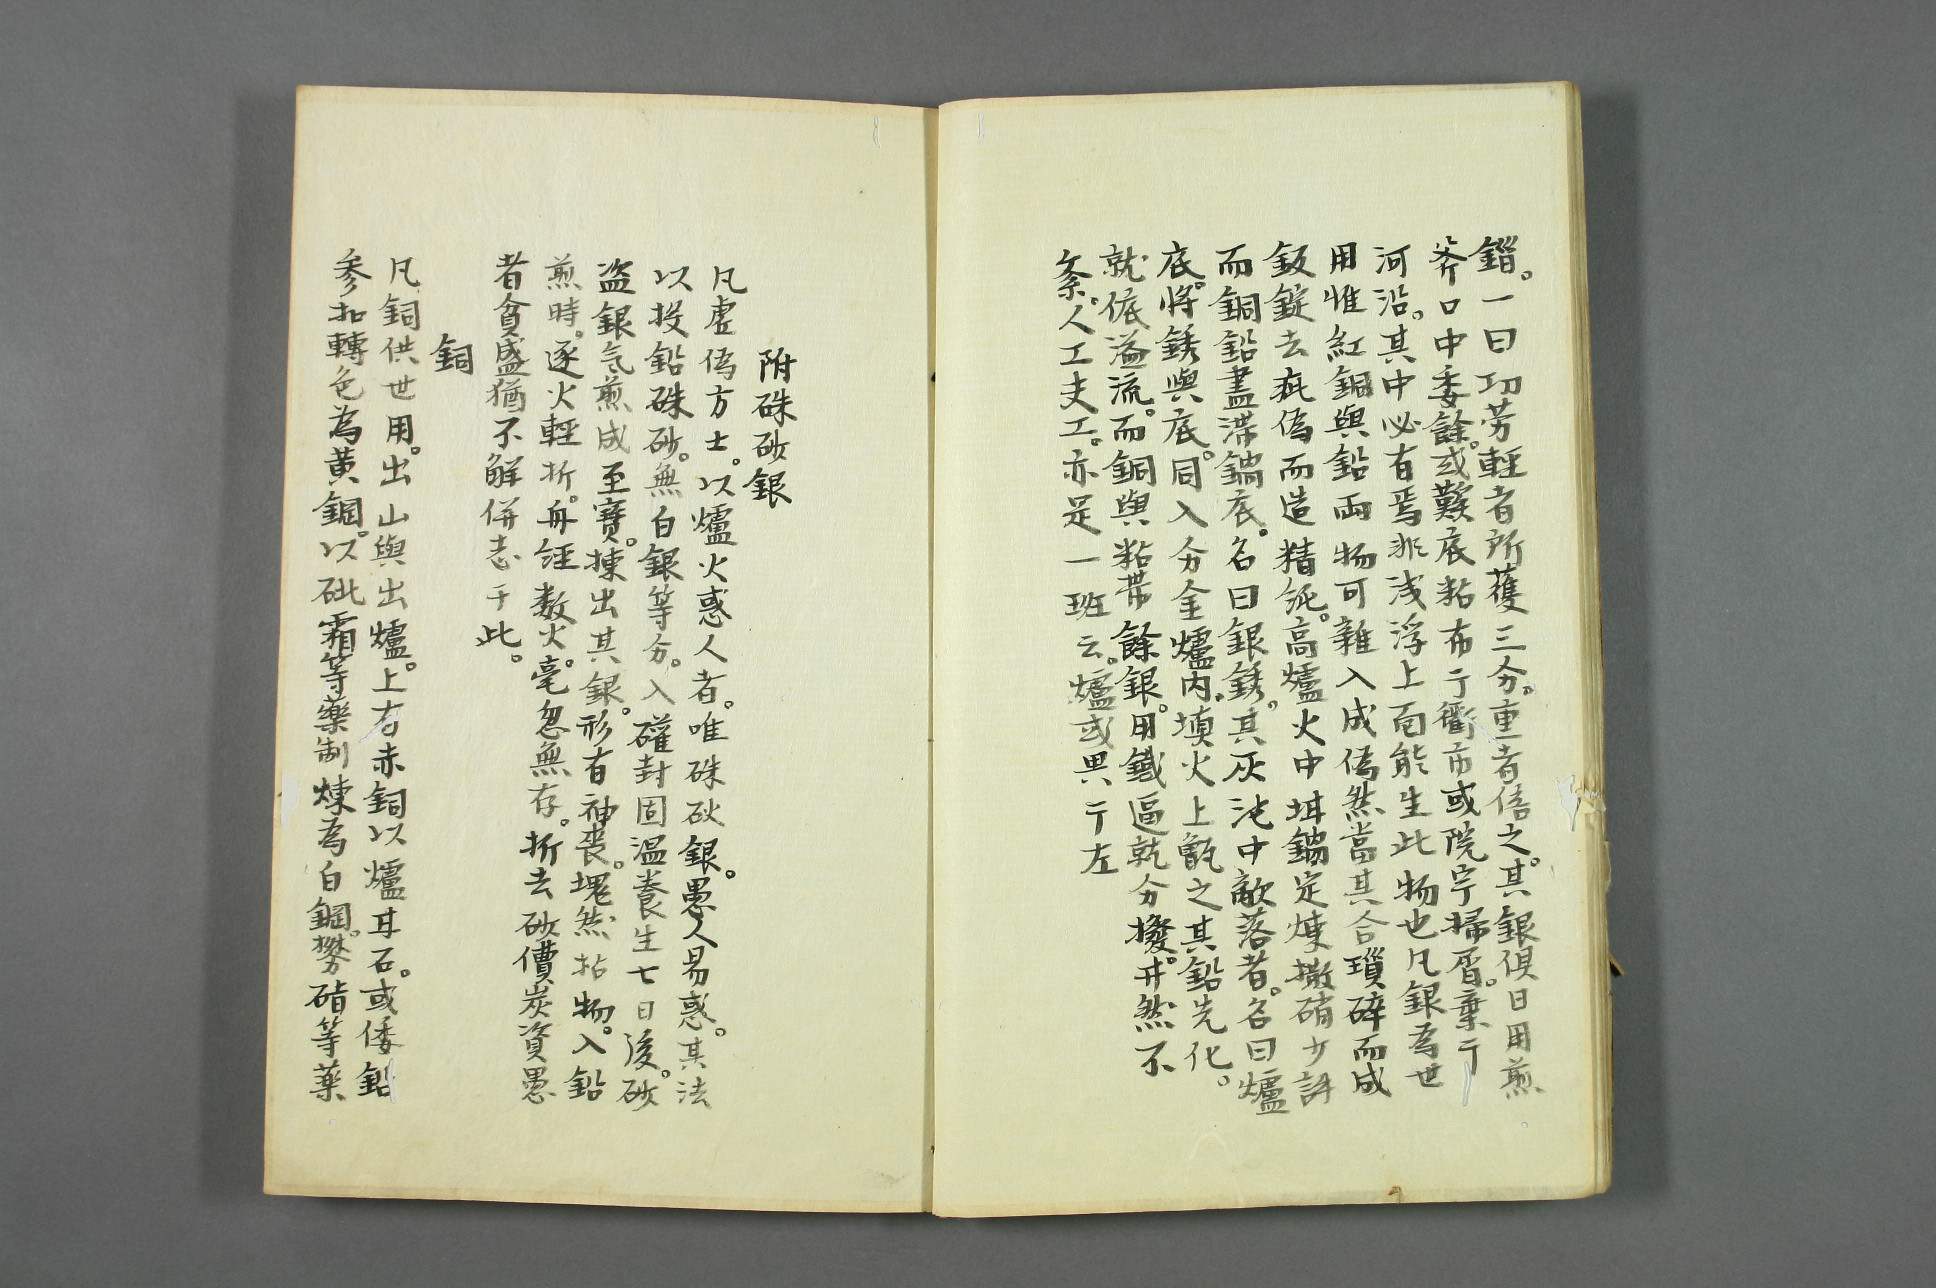 錙。一曰功劳輕者所獲三分。重者倍之。其銀俱日用煎
斧口中委餘。或鞋底粘布于衢市或院宇掃屑。棄于
河沿。其中必有焉非浅浮上面能生此物也凡銀為世
用惟紅銅與鉛兩物可雜入成偽然當其合瑣碎而成
鈑錠去疵偽而造精純。高爐火中坩鍋定煉撒硝少許
而銅鉛盡滞鍋底。名曰銀銹。其灰沱中敲落者。名曰爐
底。將銹與底。同入分金爐内。填火土甑之其鉛先化。
就低溢流。而銅與粘帶餘銀。用鐵逼就分撥。井然不
紊。人工天工。亦足一班云。爐或異于左
附硃砂銀
凡虚偽方士。以爐火惑人者。唯硃砂銀。愚人易惑。其法
以投鉛硃砂。無白銀等分。入礶封固温養生七日後。砂
盗銀气煎成至寶。揀出其銀。形有神喪。塊然枯物。入鉛
煎時。逐火輕折。再經数火。毫忽無存。折去砂價炭資愚
者貪盛猶不解併志于此。
銅
凡銅供世用。出山與出爐。上有赤銅以爐甘石。或倭鉛
参扣轉色為黄銅。以砒霜等藥制煉為白銅。攀硝等薬